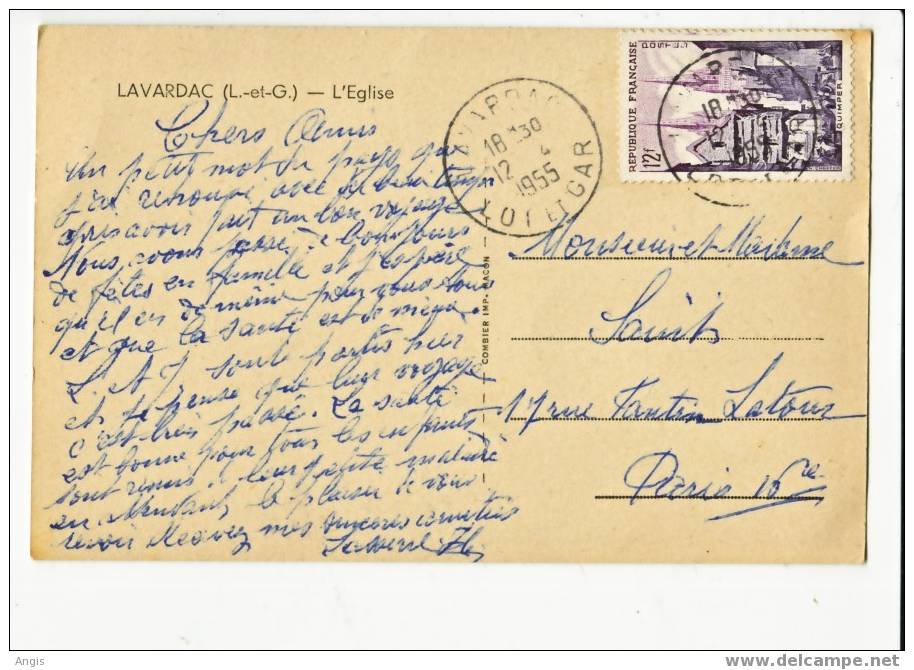 LAVARDAC (L.-et-G.) — L'Eglise
Chers Amis
Un petit mot du pays que
j'ai retrouvé avec du beau temps
après avoir fait un bon voyage
Nous avons passé de bons jours
de fêtes en famille et j'espère
qu'il en de même pour vous tous
et que la santé est de même.
L. et J. sont partis hier
et je pense que leur voyage
c'est très passé. La santé
est bonne pour tous les enfants
sont remis leur petite maladie
en attendant le plaisir de vous
revoir Recevez mes sincères amitiés
COMBIER IMP. MACON
LAVARDAC
18 H 30
12 4
1955
LOT ET GAR
RÉPUBLIQUE FRANÇAISE
POSTES
12f
QUIMPER
18 H 30
12
1955
Monsieur et Madame
17 rue Fantin Latour
Paris 16e
Angis
www.delcampe.net